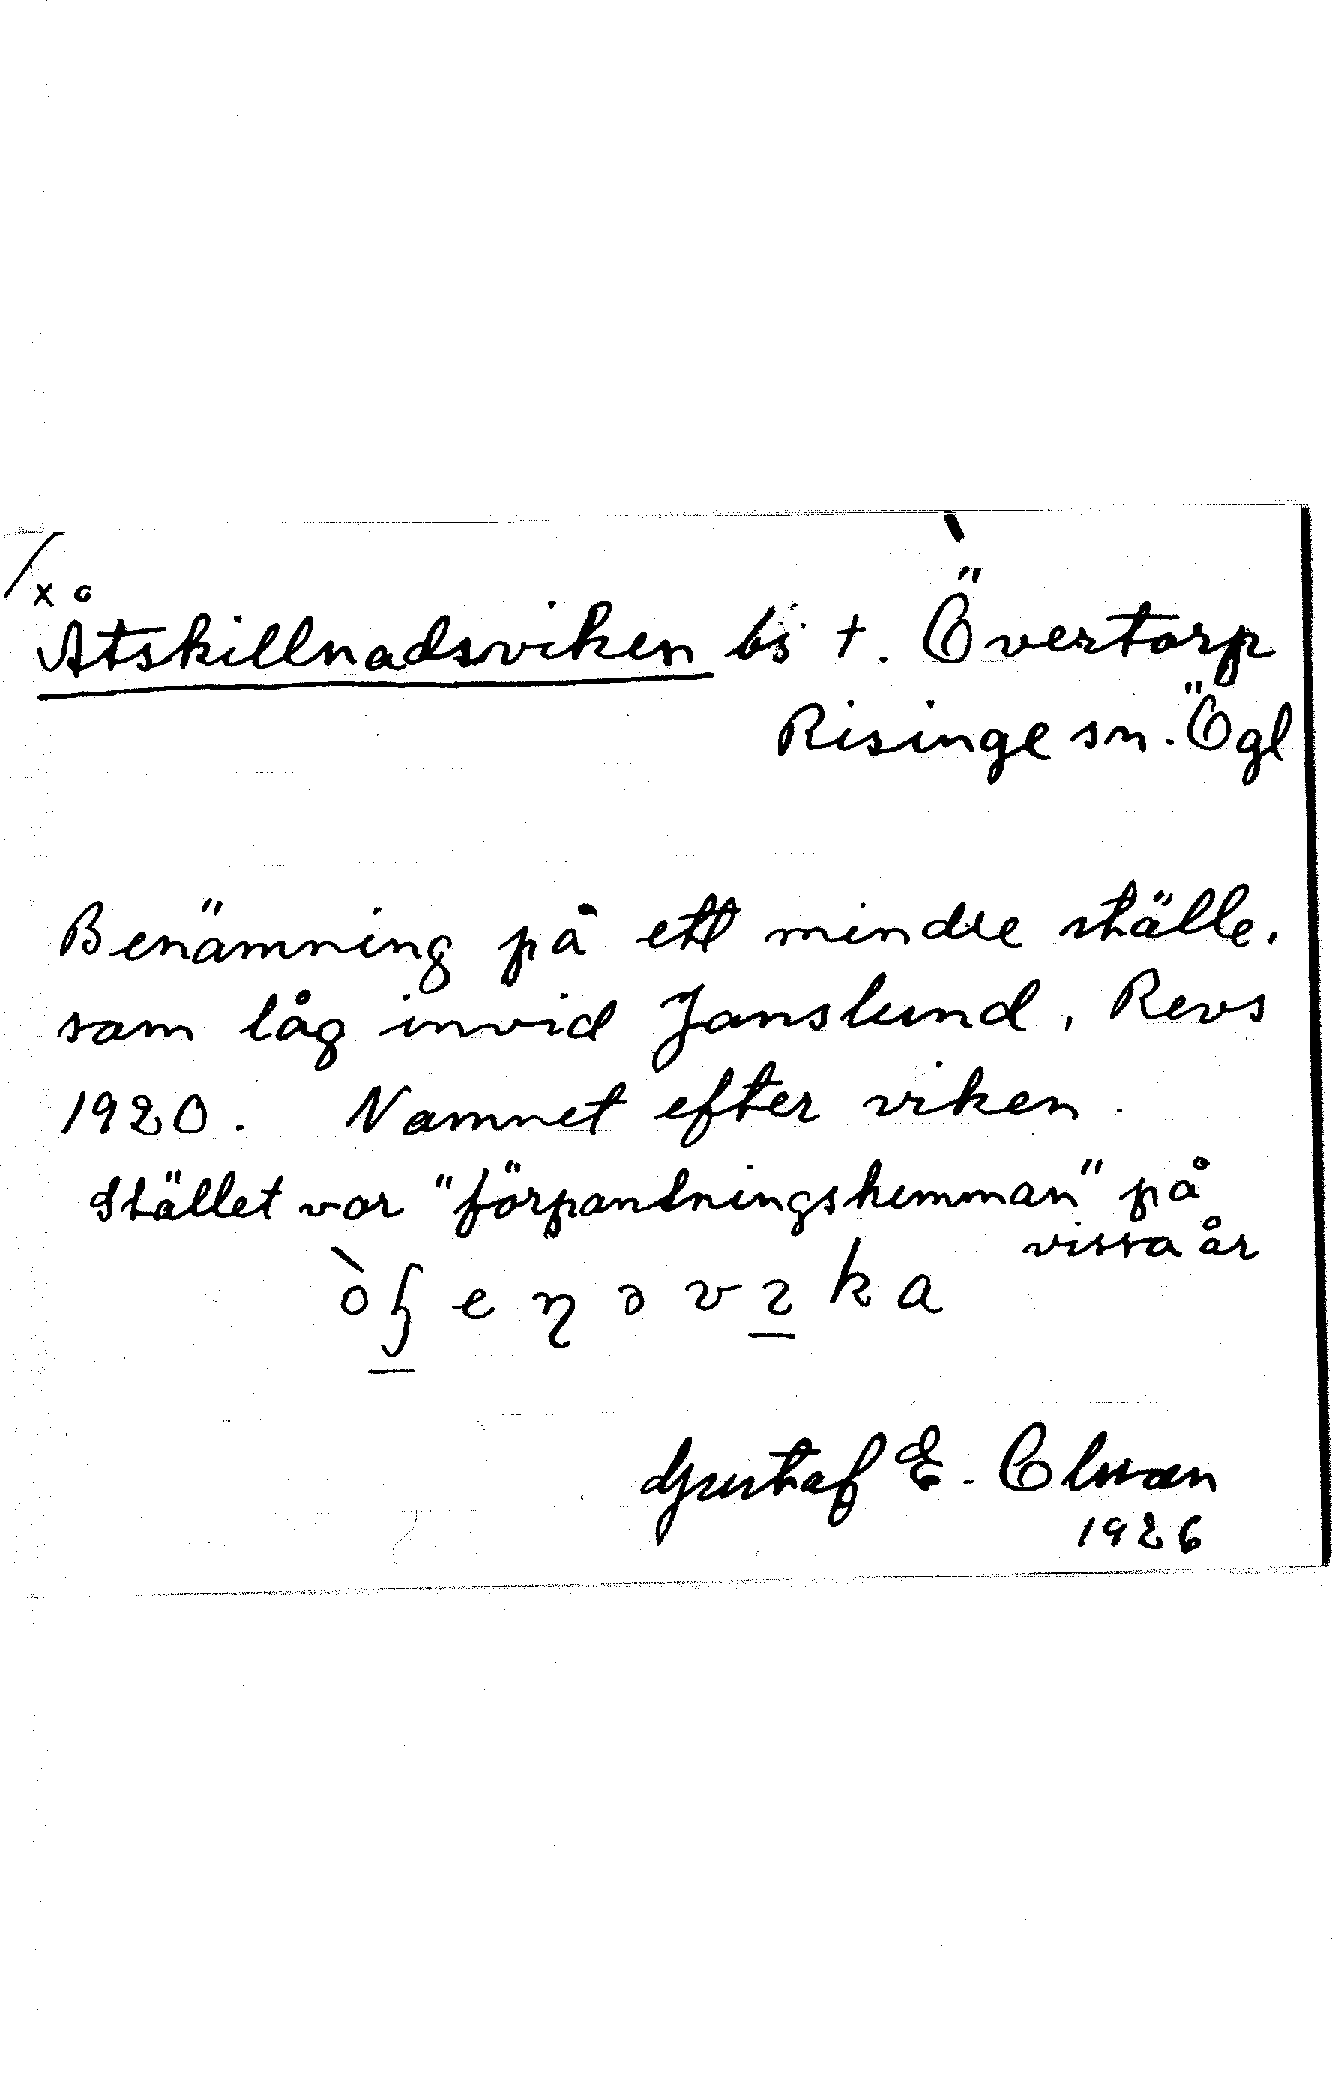 x Åtskillnadsviken bs t. Övertorp
Risinge sn. Ögl
Benämning på ett mindre ställe,
som låg invid Janslund, Revs
1920. Namnet efter viken.
Stället var "förpantningshemman" på
vissa år
Gustaf E. Olsson
1926